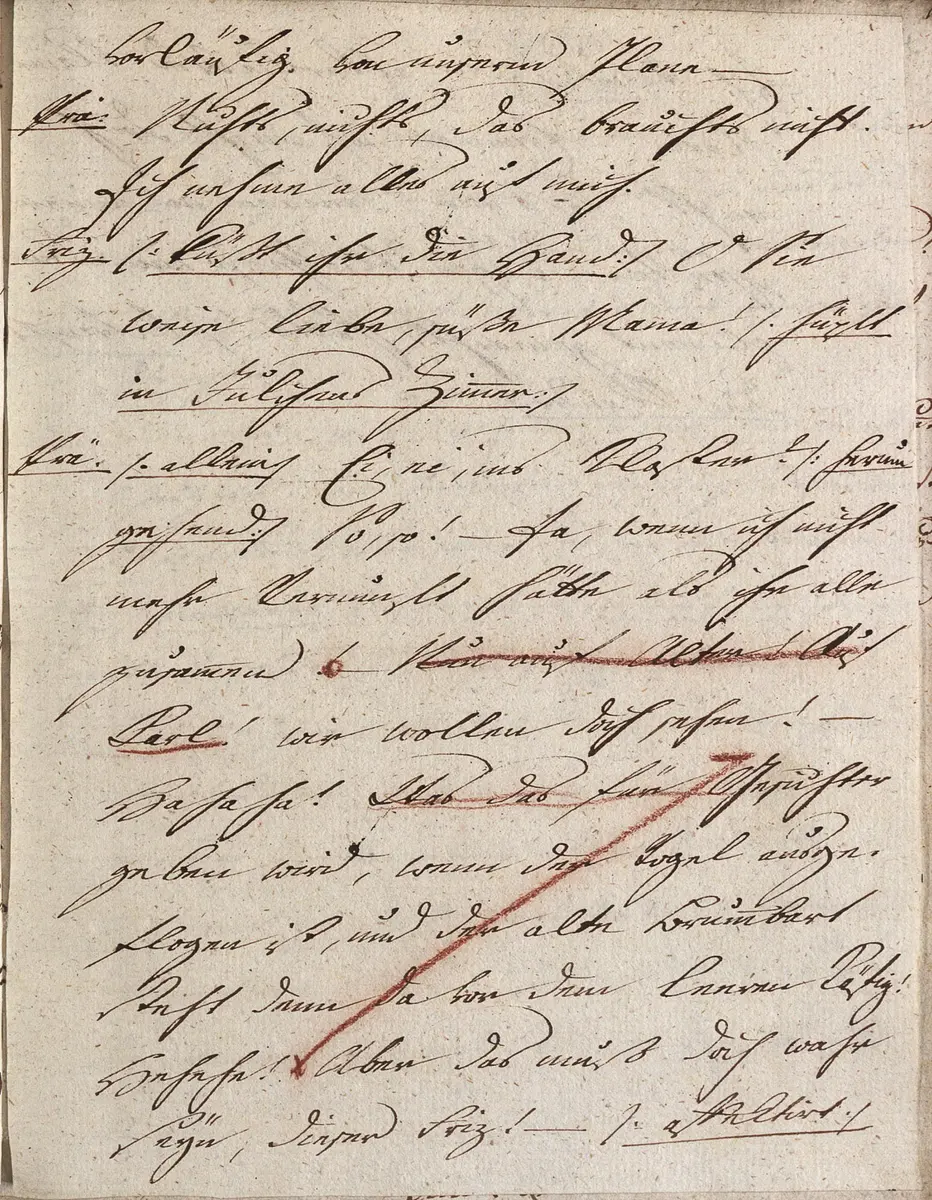 vorläufig von unserm Plane —
Prä. Nichts, nichts, das brauchts nicht.
Ich nehme alles auf mich.
Friz. /: küßt ihr die Hand :/ O Sie
weise liebe, süße Mama! /: hüpft
in Julchens Zimmer :/
Prä. /: allein :/ Ei, ei, ins Kloster? /: herum
gehend :/ So, so! — Ja, wenn ich nicht
mehr Vernunft hätte als ihr alle
zusammen! — Nun auf Alter! Auf
Karl! wir wollen doch sehen! —
Hahaha! Was das für Gesichter
geben wird, wenn der Vogel ausge-
flogen ist, und der alte Brumbart
steht denn da vor dem leeren Käfig!
Hehehe! Aber das muß doch wahr
seyn, dieser Friz! — /: affektirt :/